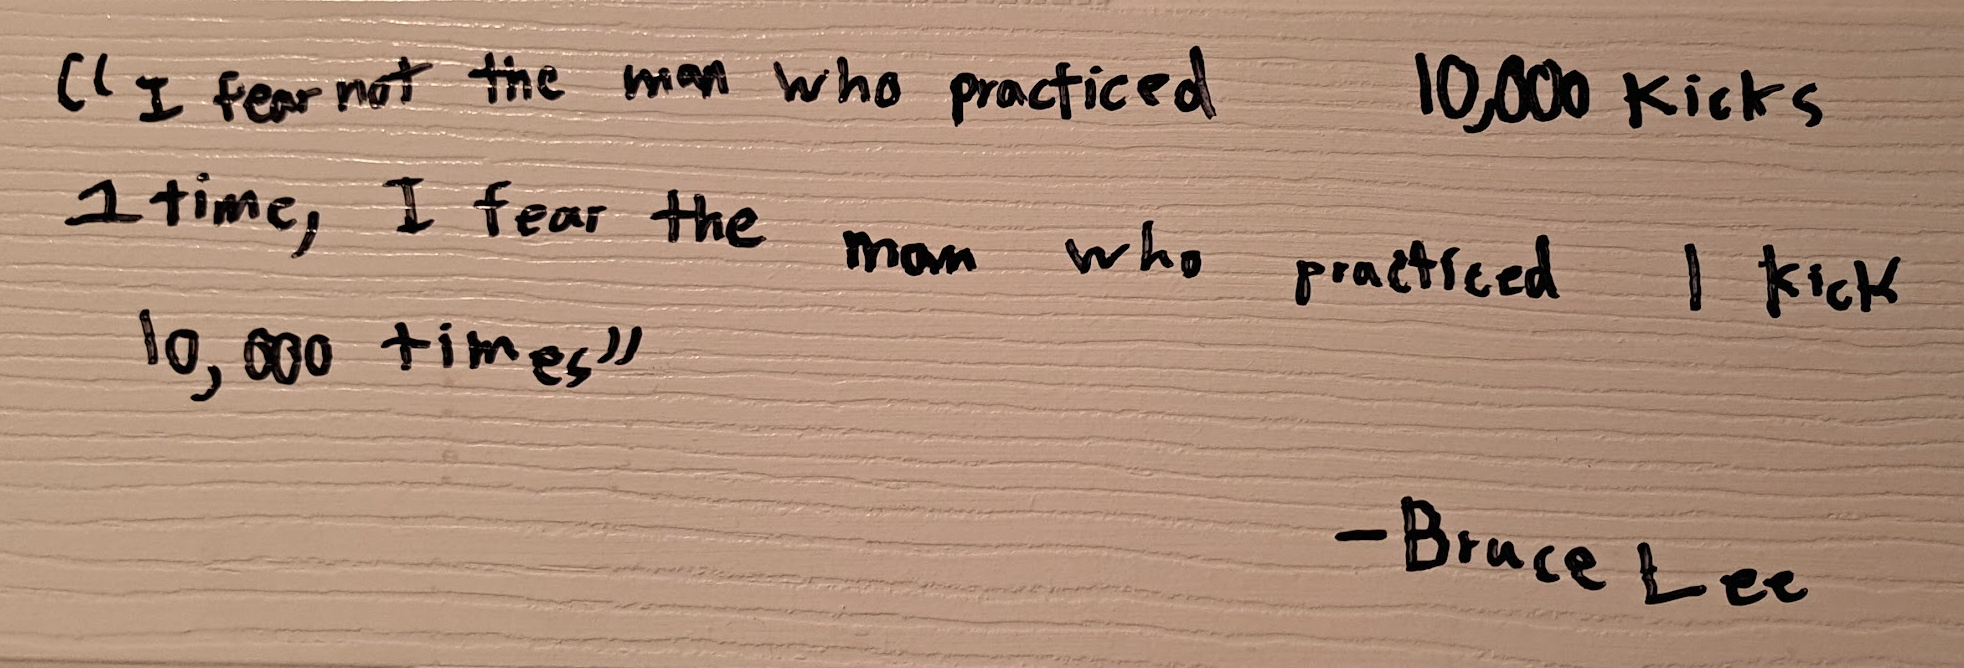 "I fear not the man who practiced 10,000 kicks
1 time, I fear the man who practiced 1 kick
10,000 times"
-Bruce Lee